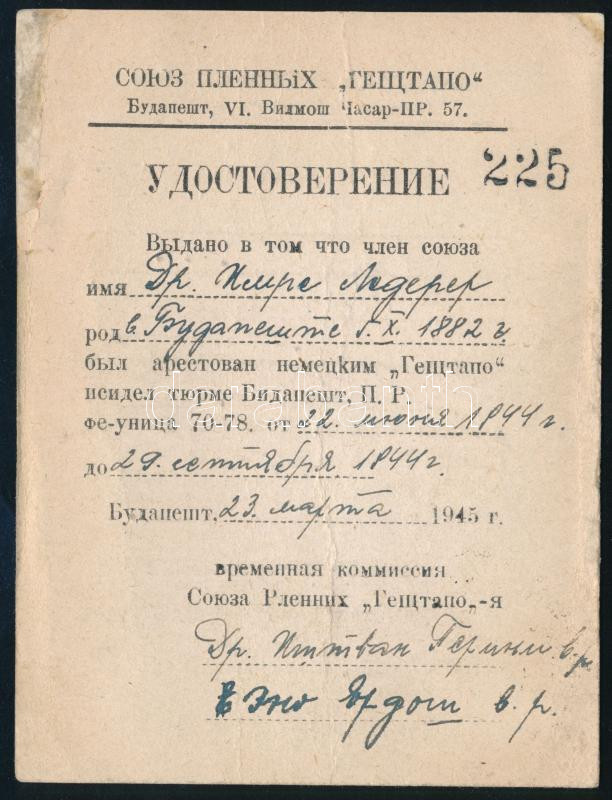 СОЮЗ ПЛЕННЫХ „ГЕЩТАПО“
Будапешт, VI. Вилмош Часар-ПР. 57.
УДОСТОВЕРЕНИЕ 225
Выдано в том что член союза
имя Др. Имре Ледерер
род в Будапеште 5. X. 1882 г.
был арестован немецким „Гещтапо“
исидел тюрме Бидапешт, П. Р.
Фе-уница 70-78. от 22. июня 1944 г.
до 29. сентября 1844 г.
Будапешт, 23. марта 1945 г.
временная коммиссия
Союза Рленних „Гещтапо„-я
Др. Иштван в. р.
Ердош в. р.
darabanth